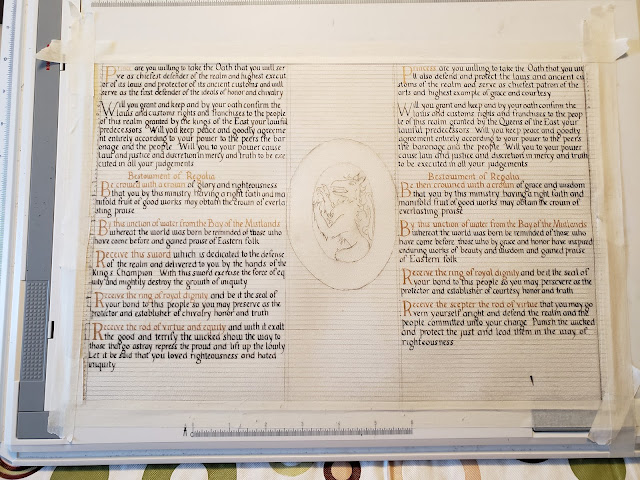 Prince are you willing to take the Oath that you will ser
ve as chiefest defender of the realm and highest execut
or of its laws and protector of its ancient customs and will
serve as the first defender of the ideals of honor and chivalry
Will you grant and keep and by your oath confirm the
laws and customs rights and franchises to the people
of this realm granted by the kings of the East your lawful
predecessors Will you keep peace and godly agreeme
nt entirely according to your power to the peers the bar
onage and the people Will you to your power cause
law and justice and discretion in mercy and truth to be exe
cuted in all your judgements
Bestowment of Regalia
Be crowned with a crown of glory and righteousness
that you by this ministry having a right faith and ma
nifold fruit of good works may obtain the crown of everla
sting praise
By this unction of water from the Bay of the Mutlands
whereat the world was born be reminded of those who
have come before and gained praise of Eastern folk
Receive this sword which is dedicated to the defense
of the realm and delivered to you by the hands of the
King's Champion With this sword exercise the force of eq
uity and mightily destroy the growth of iniquity
Receive the ring of royal dignity and be it the seal of
your bond to this people so you may preserve as the
protector and establisher of chivalry honor and truth
Receive the rod of virtue and equity and with it exalt
the good and terrify the wicked show the way to
those that go astray repress the proud and lift up the lowly
Let it be said that you loved righteousness and hated
iniquity
Princess are you willing to take the Oath that you wi
ll also defend and protect the laws and ancient cu
stoms of the realm and serve as chiefest patron of the
arts and highest example of grace and courtesy
Will you grant and keep and by your oath confirm the
laws and customs rights and franchises to the peop
le of this realm granted by the Queens of the East your
lawful predecessors Will you keep peace and godly
agreement entirely according to your power to the peers
the baronage and the people Will you to your power
cause law and justice and discretion in mercy and truth
to be executed in all your judgements
Bestowment of Regalia
Be then crowned with a crown of grace and wisdom
that you by this ministry having a right faith and
manifold fruit of good works may obtain the crown of
everlasting praise
By this unction of water from the Bay of the Mutlands
whereat the world was born be reminded of those who
have come before those who by grace and honor have inspired
enduring works of beauty and wisdom and gained praise
of Eastern folk
Receive the ring of royal dignity and be it the seal of
your bond to this people so you may persevere as the
protector and establisher of courtesy honor and truth
Receive the scepter the rod of virtue that you may go
vern yourself aright and defend the realm and the
people committed unto your charge Punish the wicked
and protect the just and lead them in the way of
righteousness